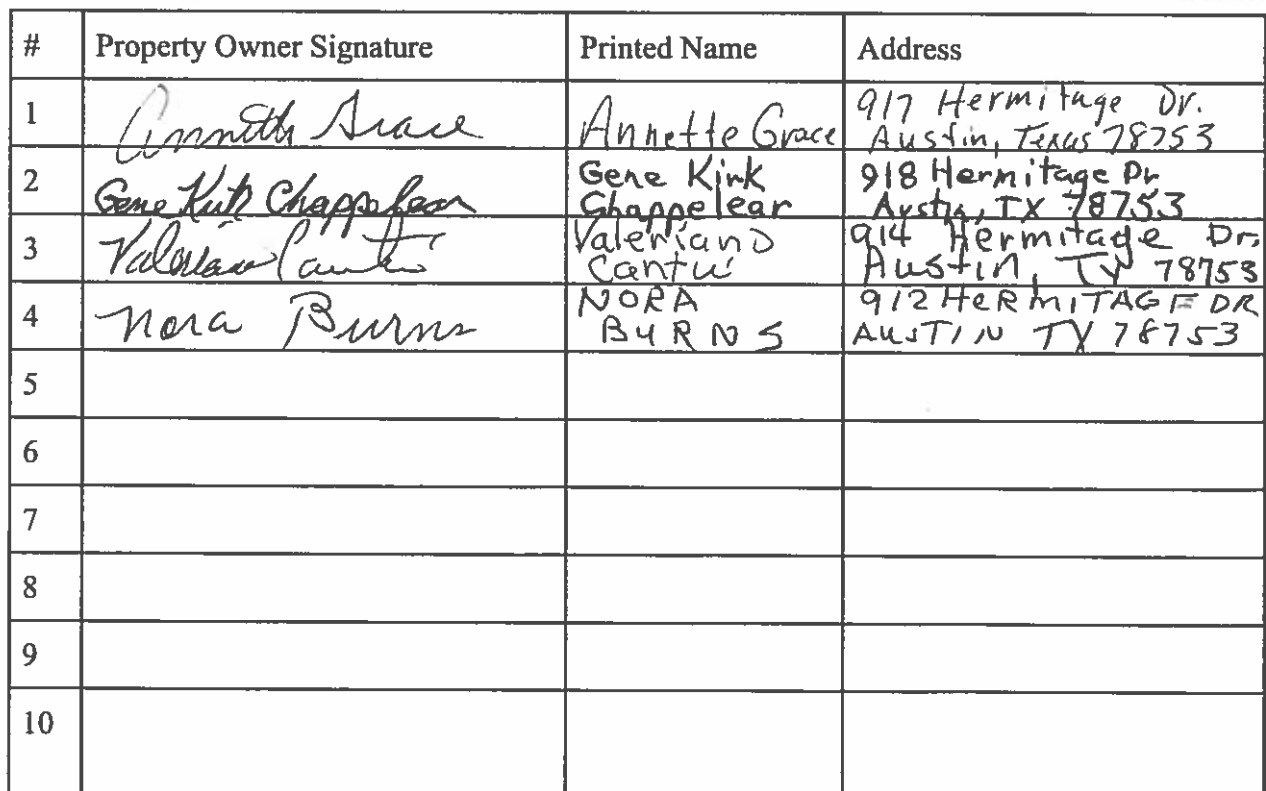 # Property Owner Signature Printed Name Address
1 Annette Grace Annette Grace 917 Hermitage Dr.
Austin, Texas 78753
2 Gene Kirk Chappelear Gene Kirk 918 Hermitage Dr
Chappelear Austin, TX 78753
3 Valeriano Cantú Valeriano 914 Hermitage Dr.
Cantú Austin, TX 78753
4 Nora Burns NORA 912 HERMITAGE DR
BURNS AUSTIN TX 78753
5
6
7
8
9
10